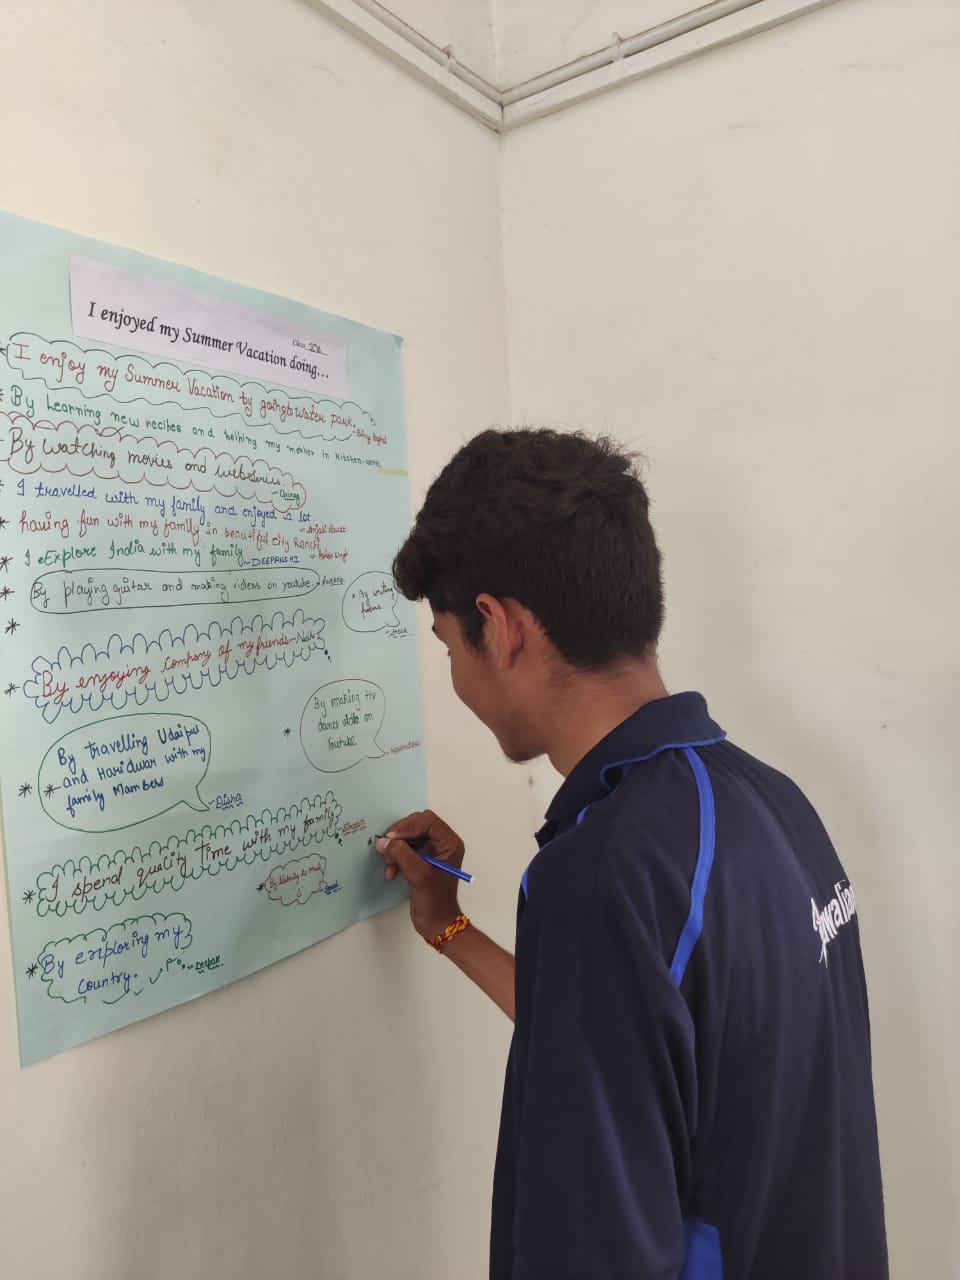 I enjoyed my Summer Vacation doing...
Class
I enjoy my Summer Vacation by going to water park.
By Learning new recipes and helping my mother in kitchen-work.
By watching movies and webseries.
~Chirag
I travelled with my family and enjoyed a lot.
~Anjali Rawat
having fun with my family in beautiful city Ranchi
I eExplore India with my family ~DEEPANSHI
By playing guitar and making videos on youtube.
By writing
By enjoying company of my friends
By making the
dance video on
Youtube.
By travelling Udaipur
and Haridwar with my
family Mambers
~Aisha
I spend quality Time with my family
By exploring my
country.
~Deepak